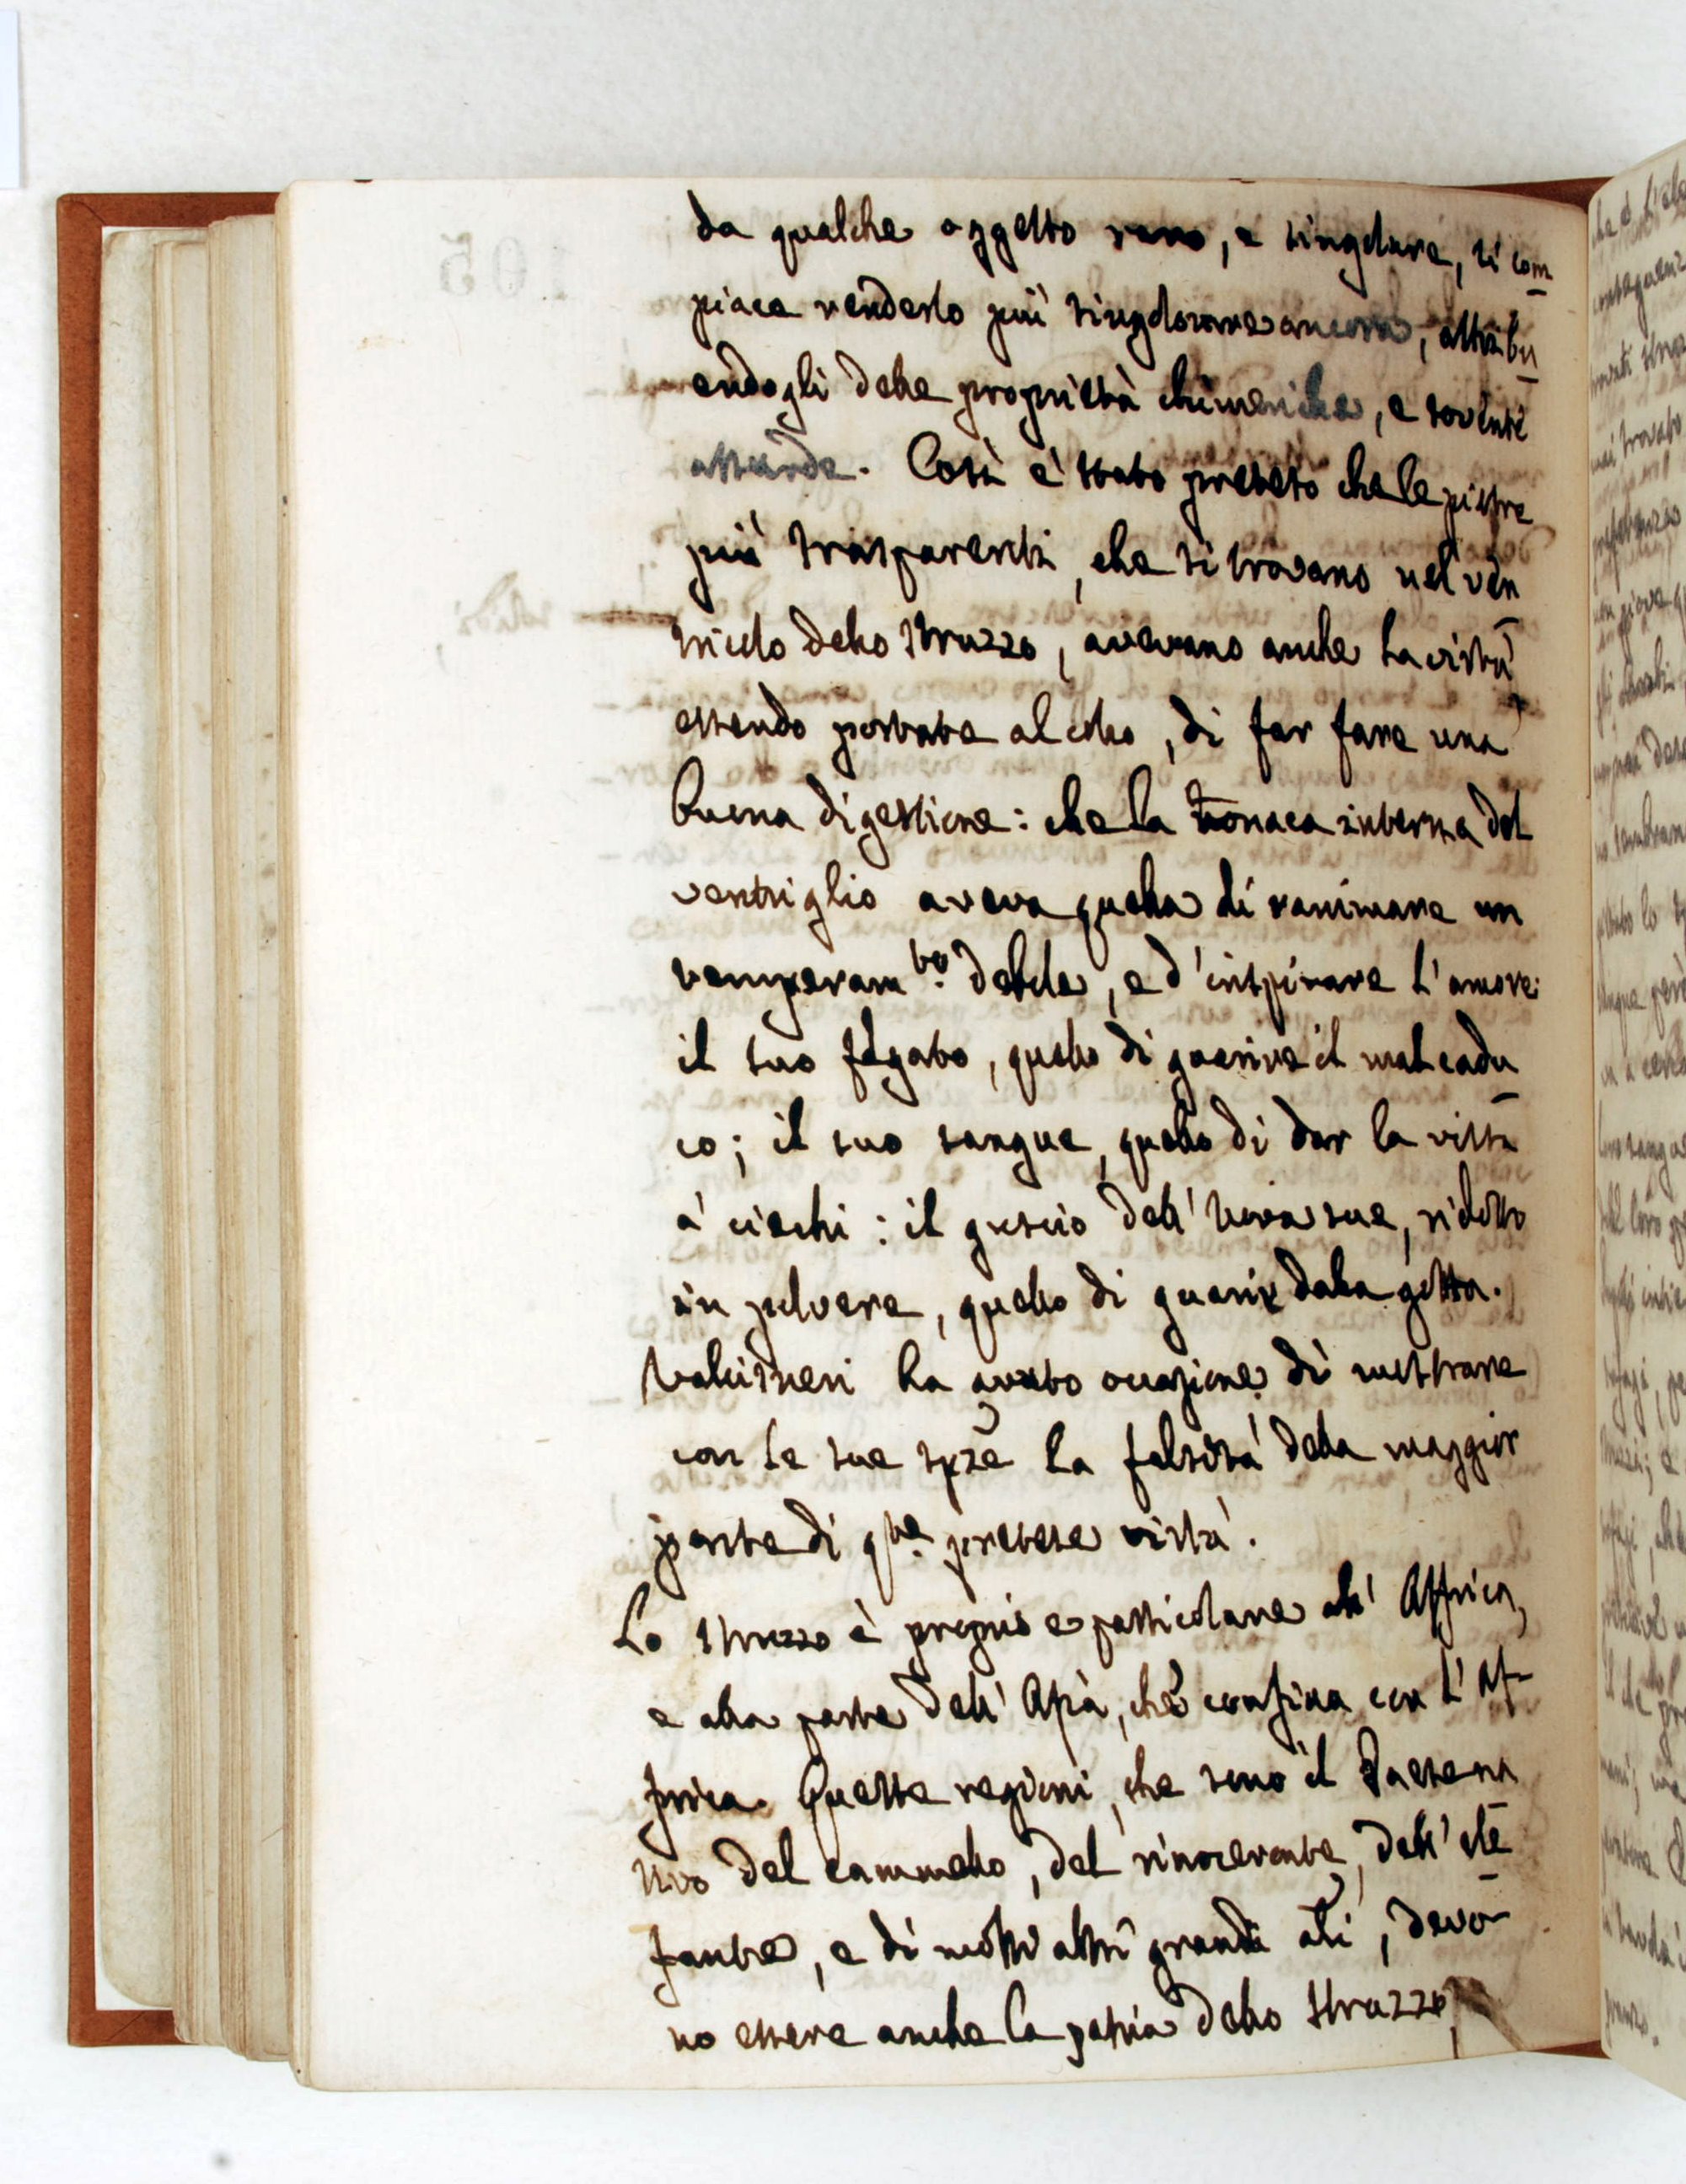 da qualche oggetto raro, e singolare, si com
piace renderlo più singolare ancora, attribu
endogli delle proprietà chimeriche, e sovente
assurde. Così è stato preteso che le pietre
più trasparenti, che si trovano nel ven
tricolo dello Struzzo, avevano anche la virtù
essendo portate al collo, di far fare una
buona digestione: che la tonaca interna del
ventriglio aveva quella di rianimare un
temperam.to debole, e d'inspirare l'amore:
il suo fegato, quello di guarire il mal cadu
co; il suo sangue, quello di dar la vista
a' ciechi: il guscio dell'uova sue, ridotto
in polvere, quello di guarir dalla gotta.
Valisneri ha avuto occasione di mostrare
con le sue spze la falsità della maggior
parte di q.te pretese virtù.
Lo Struzzo è proprio e particolare all'Affrica,
e alla parte dell'Asia, che confina con l'Af-
frica. Queste regioni, che sono il Paese na
tivo del cammello, del rinoceronte, dell'ele
fante, e di molti altri grandi ali, devo
no essere anche la patria dello Struzzo,